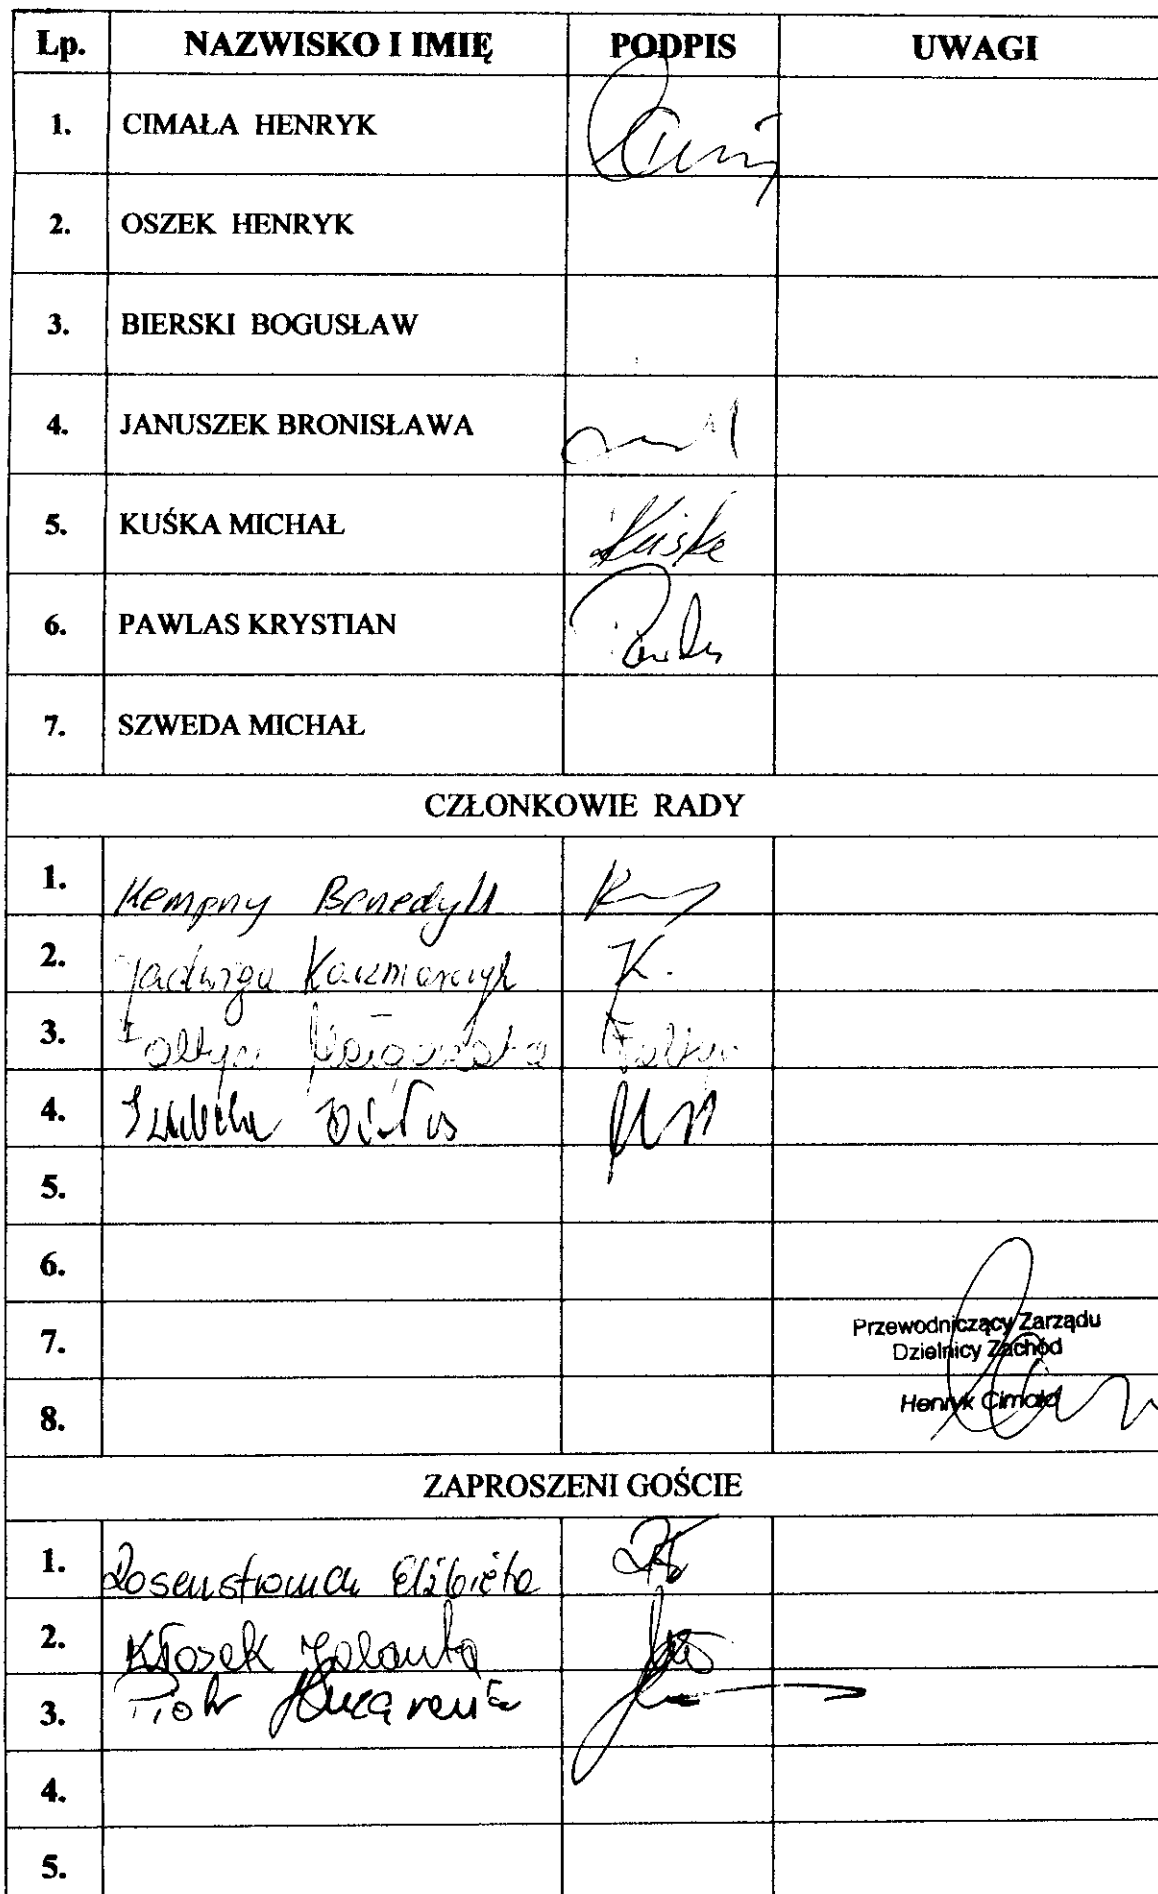 Lp. NAZWISKO I IMIĘ PODPIS UWAGI
1. CIMAŁA HENRYK
2. OSZEK HENRYK
3. BIERSKI BOGUSŁAW
4. JANUSZEK BRONISŁAWA
5. KUŚKA MICHAŁ Kuśka
6. PAWLAS KRYSTIAN
7. SZWEDA MICHAŁ
CZŁONKOWIE RADY
1. Kempny Benedykt
2. Jadwiga Kaczmarczyk K.
3. Foltyn Małgorzata Foltyn
4.
5.
6.
7. Przewodniczący Zarządu
Dzielnicy Zachód
8. Henryk Cimała
ZAPROSZENI GOŚCIE
1. Elżbieta
2. Kłosek Jolanta
3. Piotr
4.
5.